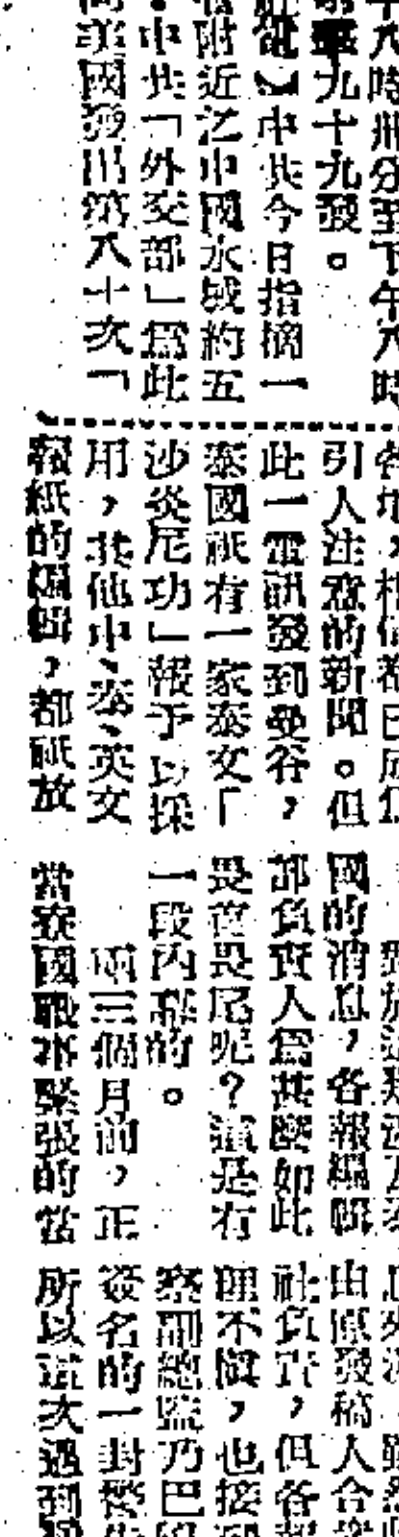 午八時卅分至下午八時
擊九十九發。
電】中共今日指摘一
省附近之中國水域約五
。中共「外交部」爲此
向美國發出第八十次「
引人注意的新聞。但
此一電訊發到曼谷,
泰國祇有一家泰文「
沙炎尼功」報予以採
用,其他中、泰、英文
報紙的編輯,都祇放
國的消息,各報編輯
部負責人爲甚麼如此
畏首畏尾呢?這是有
一段內幕的。
兩三個月前,正
當寮國戰事緊張的當
由原發稿人合
社負責,但各
理不愼,也接
察副總監乃巴
簽名的一封警
所以這次遇到